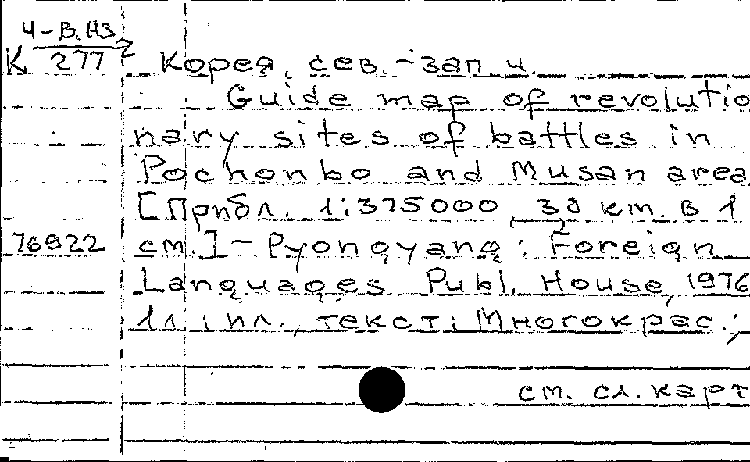 Ч-В.ИЗ
К 277 Корея, сев.-зап ч.
2
Guide map of revolutio
nary sites of battles in
Pochonbo and Musan area
[Прибл. 1:375000, 3 км. в 1
76822 см.] - Pyongyang: Foreign
Languages Publ. House, 1976
1л: ил., текст: Многокрас.;
см. сл. карт